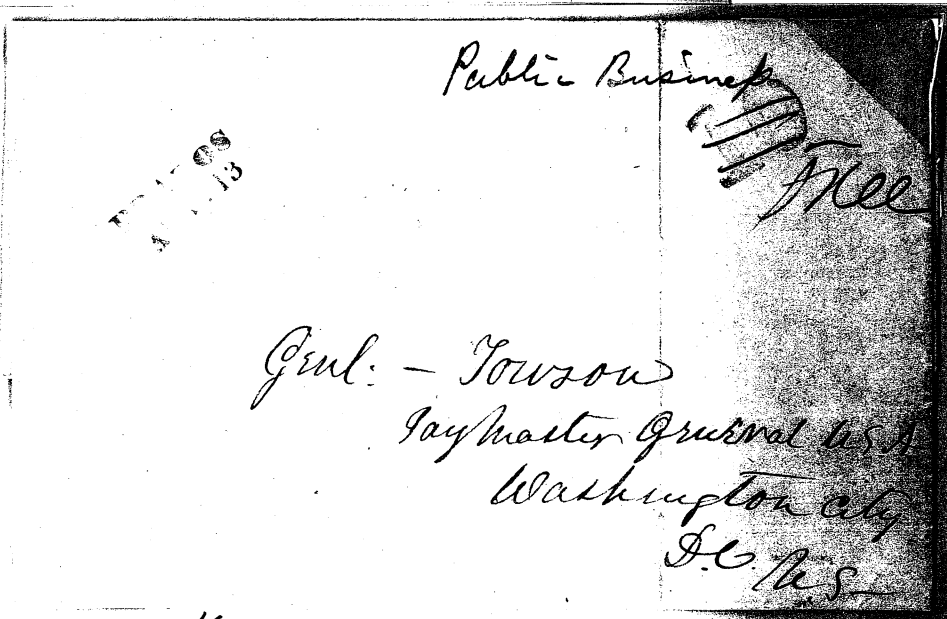 Public Business
Free
13
Genl: - Towson
Pay Master General U.S.A
Washington City
D.C. U.S.